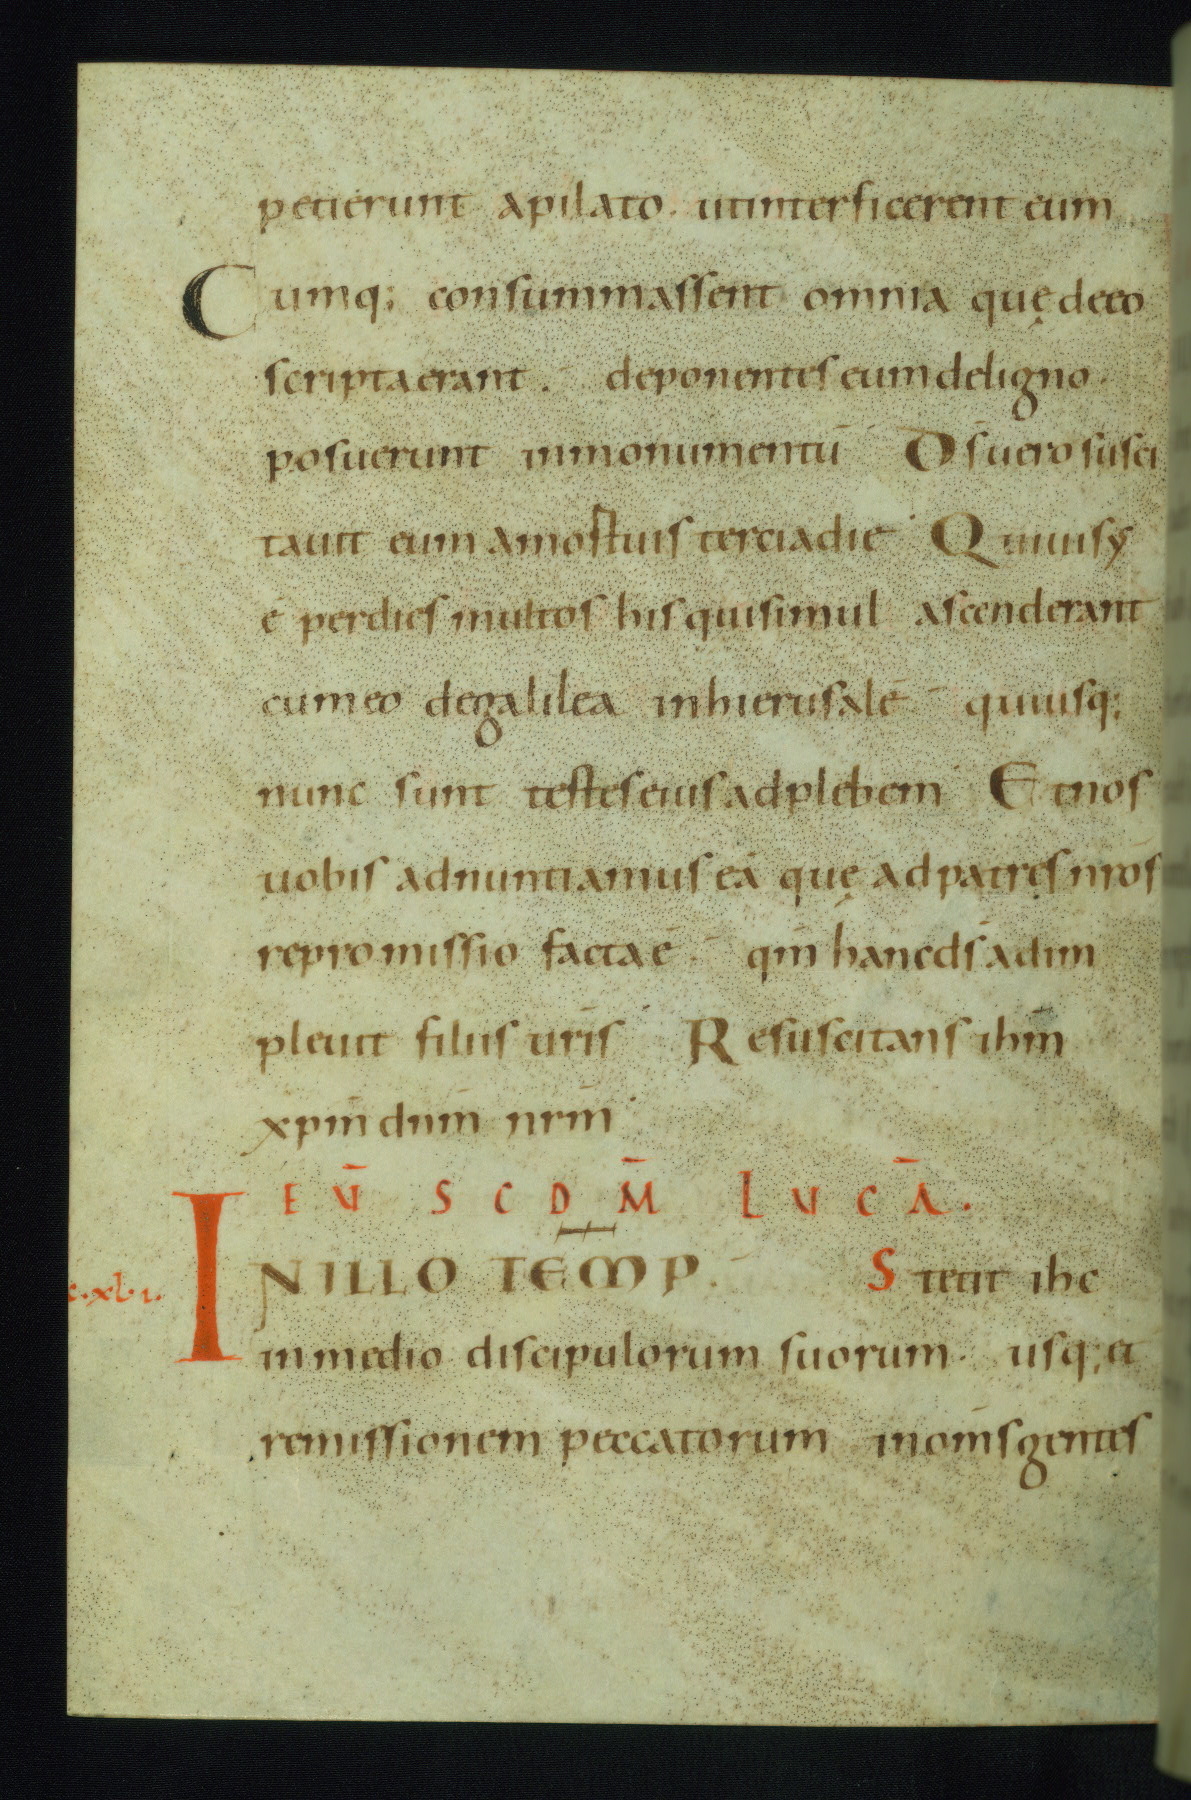 petierunt apilato. utinterficerent eum
Cumq; consummassent omnia quę deeo
scripta erant. deponentes eum deligno.
posuerunt inmonumentū Ds̄ uero susci
tauit eum amortuis terciadie Quiuisus
ē perdies multos his quisimul ascenderant
cumeo degalilea inhierusalē quiusq;
nunc sunt testes eius adplebem Et nos
uobis adnuntiamus eā quę adpatres nr̄os
repromissio facta ē. qm̄ hanc ds̄ adim
pleuit filiis ur̄is Resuscitans ihm̄
xpm̄ dnm̄ nrm̄
EV̄ SCDM̄ LVCĀ.
c.xl.i.
INILLO TEMP. Stetit ihc
inmedio discipulorum suorum. usq; et
remissionem peccatorum inom̄s gentes